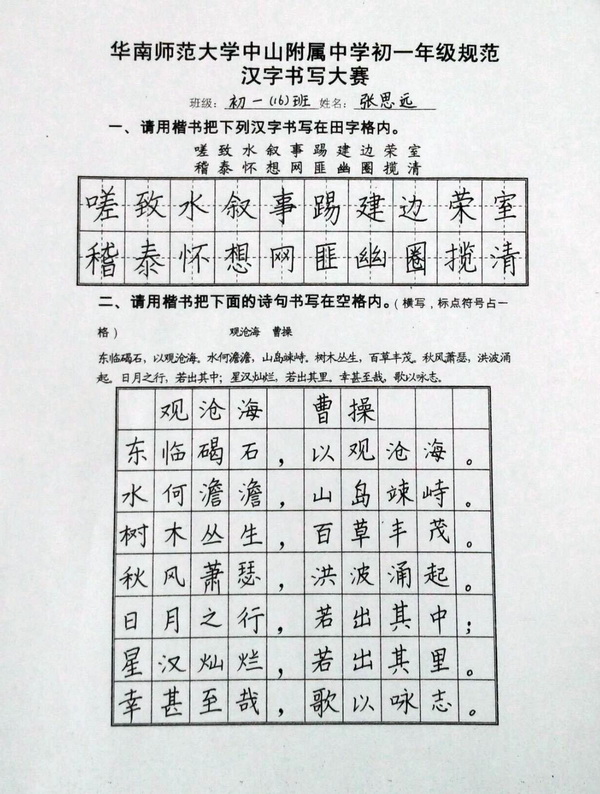 华南师范大学中山附属中学初一年级规范
汉字书写大赛
班级：初一(16)班 姓名：张思远
一、请用楷书把下列汉字书写在田字格内。
嗟 致 水 叙 事 踢 建 边 荣 室
稽 泰 怀 想 网 匪 幽 圈 揽 清
嗟致水叙事踢建边荣室
稽泰怀想网匪幽圈揽清
二、请用楷书把下面的诗句书写在空格内。（横写，标点符号占一
格） 观沧海 曹操
东临碣石，以观沧海。水何澹澹，山岛竦峙。树木丛生，百草丰茂。秋风萧瑟，洪波涌
起。日月之行，若出其中；星汉灿烂，若出其里。幸甚至哉，歌以咏志。
观沧海 曹操
东临碣石，以观沧海。
水何澹澹，山岛竦峙。
树木丛生，百草丰茂。
秋风萧瑟，洪波涌起。
日月之行，若出其中；
星汉灿烂，若出其里。
幸甚至哉，歌以咏志。